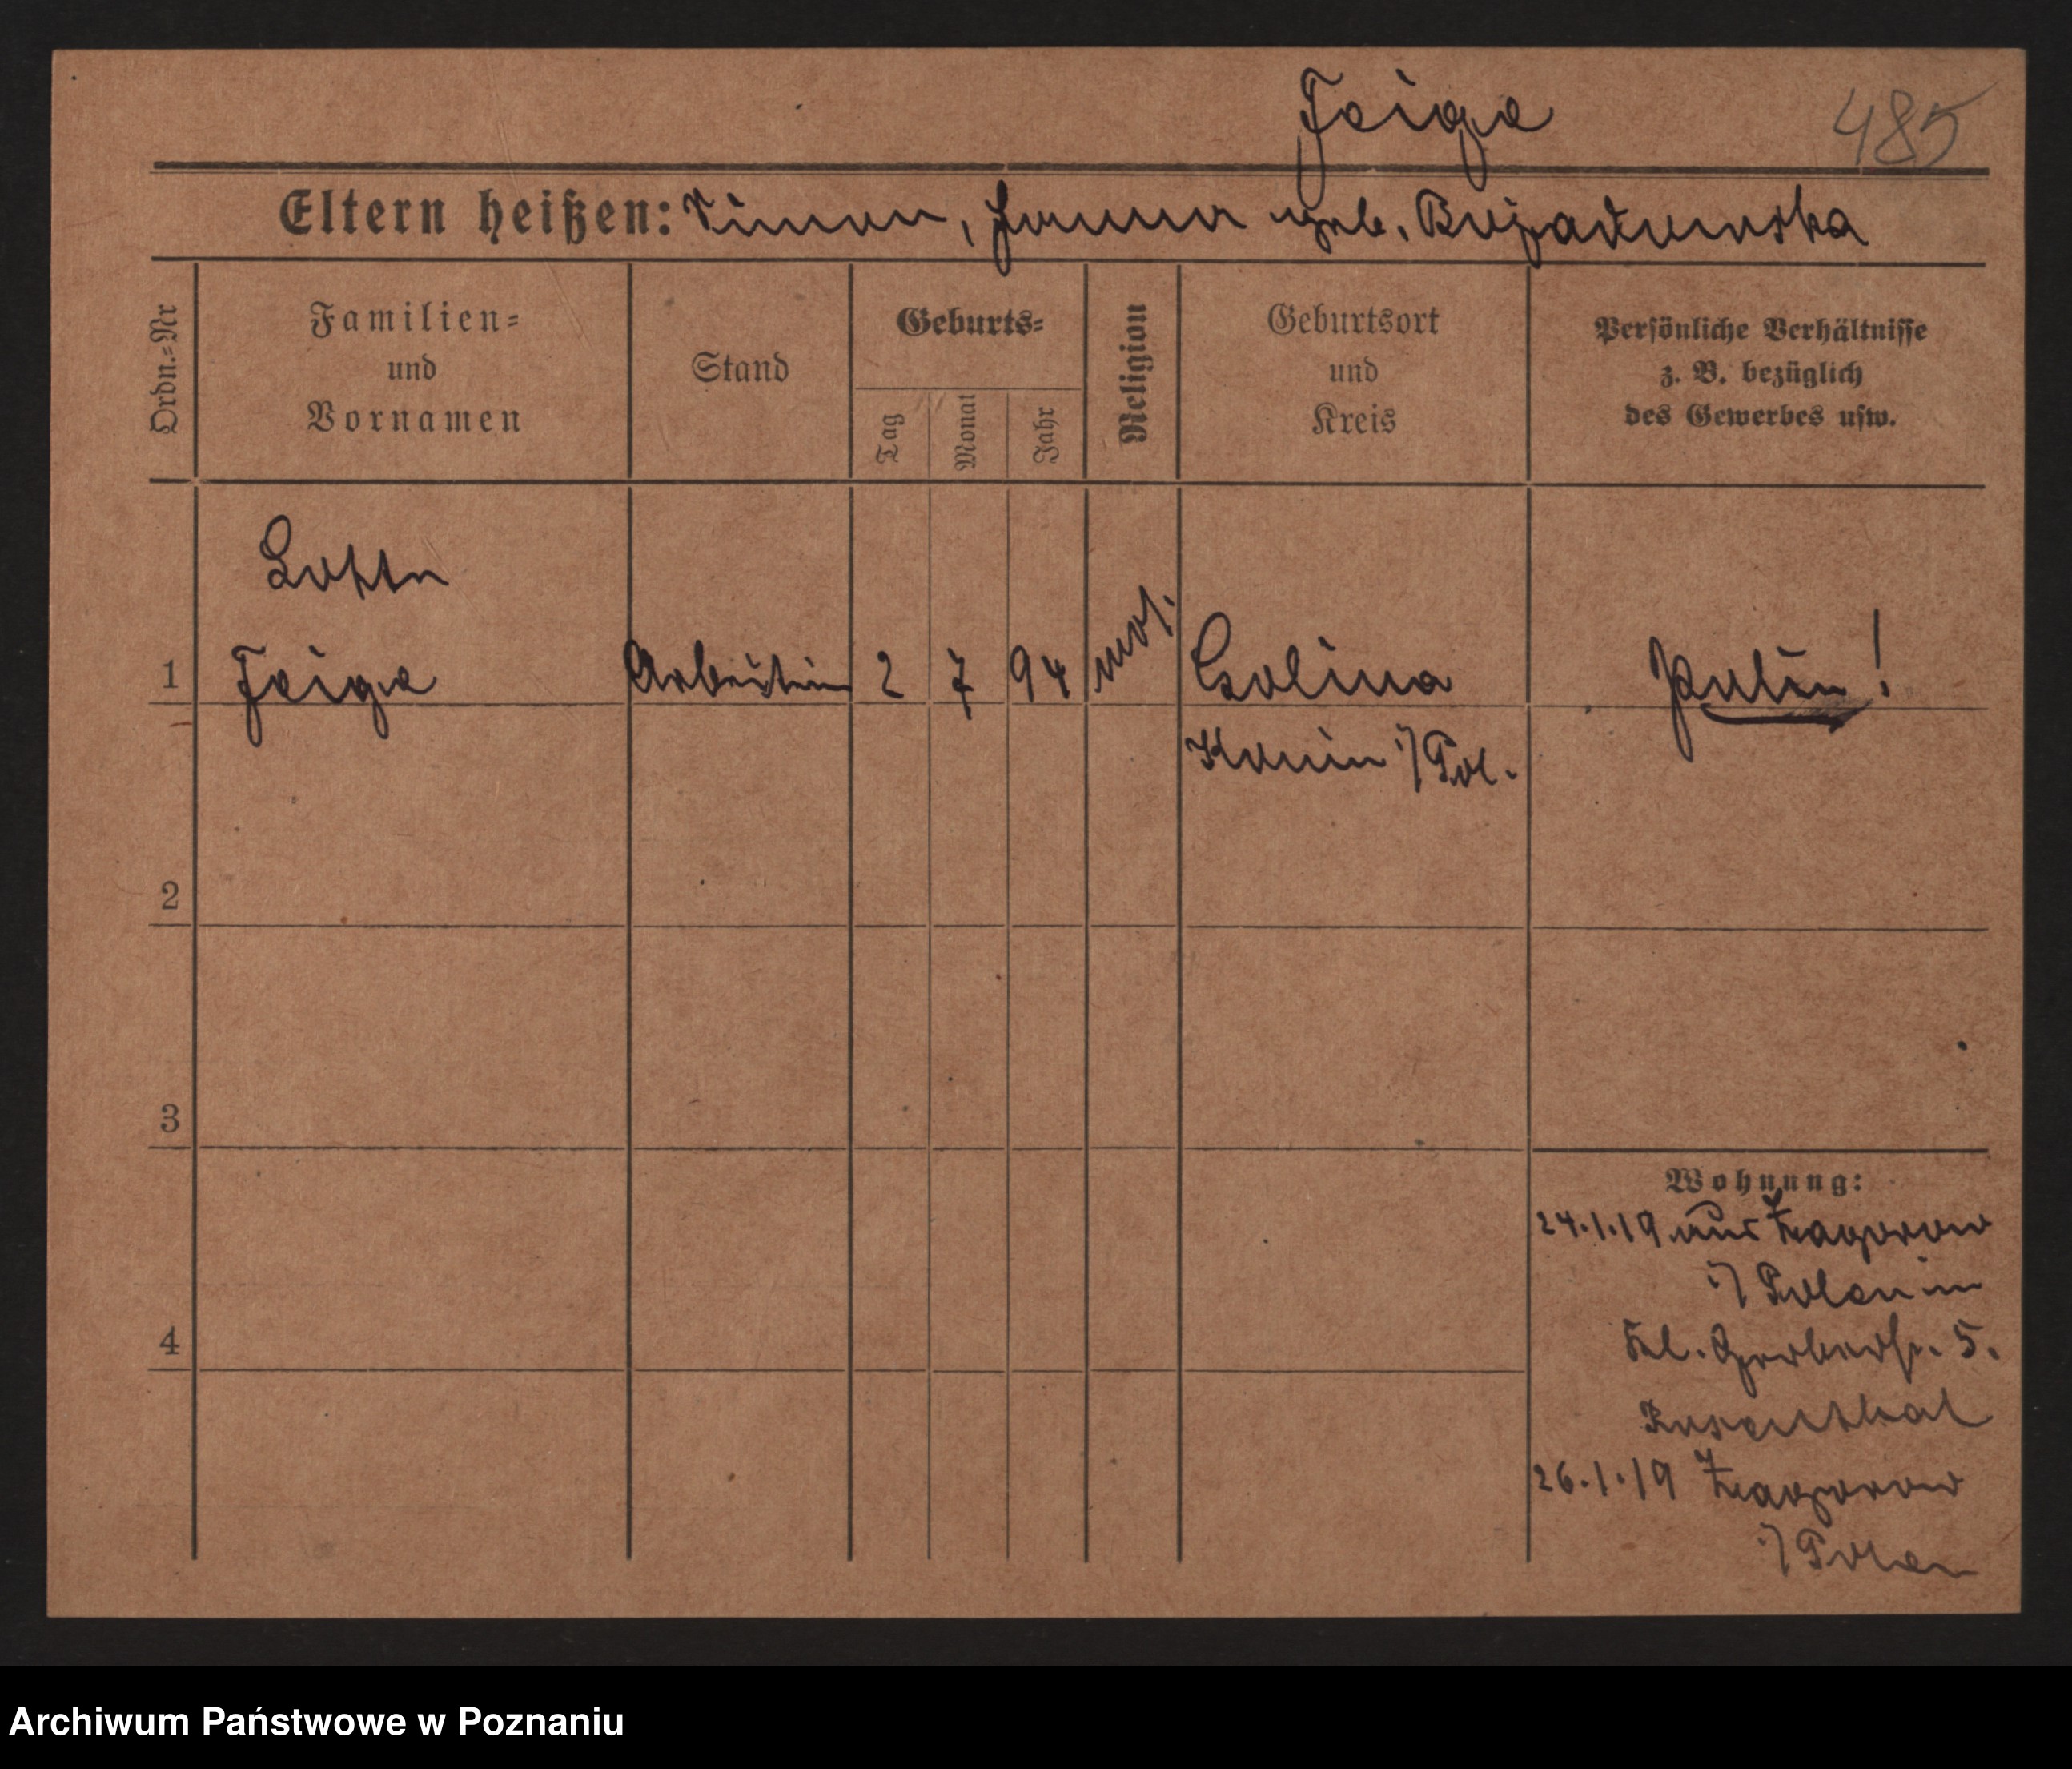 Feige
485
Eltern heißen: Simon, Hanna geb.
Ordn.-Nr
Familien-
und
Vornamen
Stand
Geburts-
Tag
Monat
Jahr
Religion
Geburtsort
und
Kreis
Persönliche Verhältnisse
z. B. bezüglich
des Gewerbes usw.
1
Feige
Arbeiterin
2
7
94
mos.
Golina
Polin!
Konin i/Pol.
2
3
4
Wohnung:
24.1.19 aus Zagorow
i/ Polen in
Kl. Gerberstr. 5.
Rosenthal
26.1.19 Zagorow
i/ Polen
Archiwum Państwowe w Poznaniu